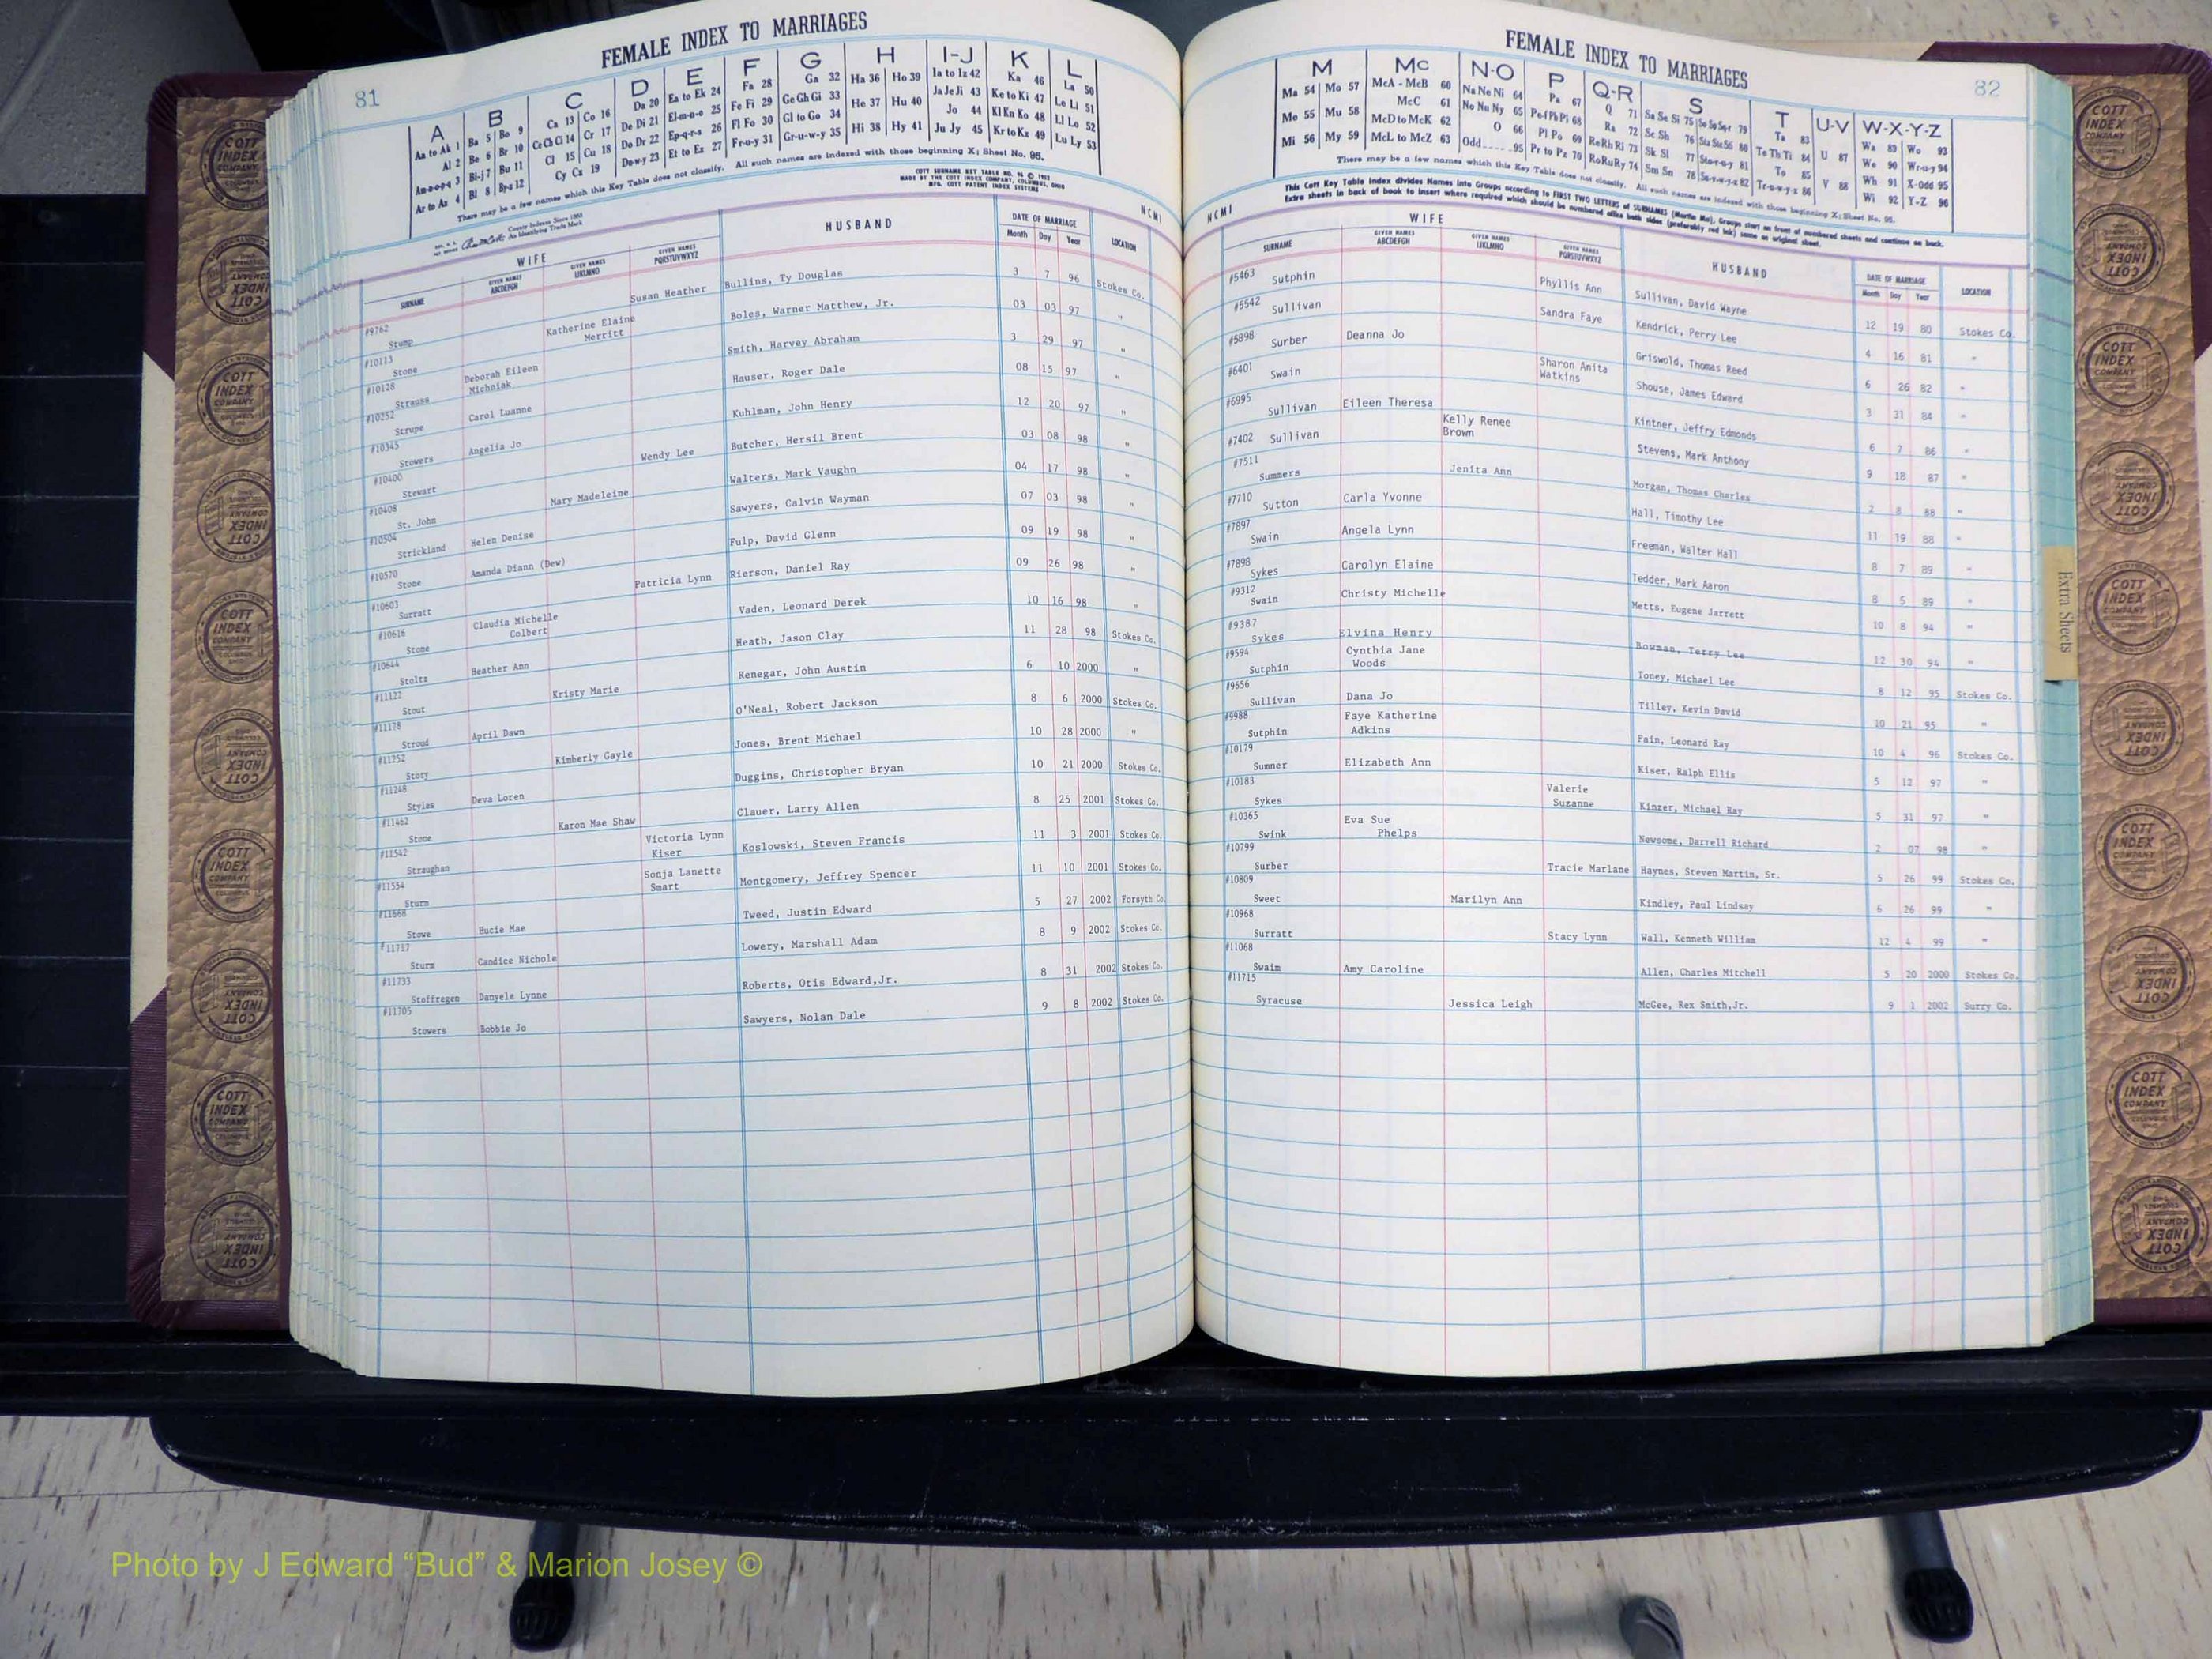 81
FEMALE INDEX TO MARRIAGES
A B C D E F G H I-J K L
Aa to Ak 1 Ba 5 Bo 9 Ca 13 Co 16 Da 20 Ea to Ek 24 Fa 28 Ga 32 Ha 36 Ho 39 Ia to Iz 42 Ka 46 La 50
Al 2 Be 6 Br 10 Ce Ch Ci 14 Cr 17 De Di 21 El-m-n-o 25 Fe Fi 29 Ge Gh Gi 33 He 37 Hu 40 Ja Je Ji 43 Ke to Ki 47 Le Li 51
Am-n-o-p-q 3 Bi-j 7 Bu 11 Cl 15 Cu 18 Do Dr 22 Ep-q-r-s 26 Fl Fo 30 Gl to Go 34 Hi 38 Hy 41 Jo 44 Kl Kn Ko 48 Ll Lo 52
Ar to Az 4 Bl 8 By-z 12 Cy Cz 19 Du-w-y 23 Et to Ez 27 Fr-u-y 31 Gr-u-w-y 35 Ju Jy 45 Kr to Kz 49 Lu Ly 53
There may be a few names which this Key Table does not classify. All such names are indexed with those beginning X; Sheet No. 95.
County Indexes Since 1888
An Identifying Trade Mark
COTT SURNAME KEY TABLE NO.
MADE BY THE COTT INDEX COMPANY, COLUMBUS, OHIO
MFG. COTT PATENT INDEX SYSTEMS
NCMI
WIFE HUSBAND DATE OF MARRIAGE LOCATION
SURNAME GIVEN NAMES ABCDEFGH GIVEN NAMES IJKLMNO GIVEN NAMES PQRSTUVWXYZ Month Day Year
#9762 Stump Susan Heather Bullins, Ty Douglas 3 7 96 Stokes Co.
#10113 Stone Katherine Elaine Merritt Boles, Warner Matthew, Jr. 03 03 97 "
#10128 Strauss Deborah Eileen Michniak Smith, Harvey Abraham 3 29 97 "
#10252 Strupe Carol Luanne Hauser, Roger Dale 08 15 97 "
#10345 Stowers Angelia Jo Kuhlman, John Henry 12 20 97 "
#10400 Stewart Wendy Lee Butcher, Hersil Brent 03 08 98 "
#10408 St. John Mary Madeleine Walters, Mark Vaughn 04 17 98 "
#10504 Strickland Helen Denise Sawyers, Calvin Wayman 07 03 98 "
#10570 Stone Amanda Diann (Dew) Fulp, David Glenn 09 19 98 "
#10603 Surratt Patricia Lynn Rierson, Daniel Ray 09 26 98 "
#10616 Stone Claudia Michelle Colbert Vaden, Leonard Derek 10 16 98 "
#10644 Stoltz Heather Ann Heath, Jason Clay 11 28 98 Stokes Co.
#11122 Stout Kristy Marie Renegar, John Austin 6 10 2000 "
#11178 Stroud April Dawn O'Neal, Robert Jackson 8 6 2000 Stokes Co.
#11252 Story Kimberly Gayle Jones, Brent Michael 10 28 2000 "
#11248 Styles Deva Loren Duggins, Christopher Bryan 10 21 2000 Stokes Co.
#11462 Stone Karon Mae Shaw Clauer, Larry Allen 8 25 2001 Stokes Co.
#11542 Straughan Victoria Lynn Kiser Koslowski, Steven Francis 11 3 2001 Stokes Co.
#11554 Sturm Sonja Lanette Smart Montgomery, Jeffrey Spencer 11 10 2001 Stokes Co.
#11668 Stowe Hucie Mae Tweed, Justin Edward 5 27 2002 Forsyth Co.
#11717 Sturm Candice Nichole Lowery, Marshall Adam 8 9 2002 Stokes Co.
#11733 Stoffregen Danyele Lynne Roberts, Otis Edward,Jr. 8 31 2002 Stokes Co.
#11705 Stowers Bobbie Jo Sawyers, Nolan Dale 9 8 2002 Stokes Co.
FEMALE INDEX TO MARRIAGES
82
M Mc N-O P Q-R S T U-V W-X-Y-Z
Ma 54 Mo 57 McA - McB 60 Na Ne Ni 64 Pa 67 Q 71 Sa Se Si 75 So Sp Sq-r 79 Ta 83 Wa 89 Wo 93
Me 55 Mu 58 McC 61 No Nu Ny 65 Pe-f Ph Pi 68 Ra 72 Sc Sh 76 Sta Ste Sti 80 Te Th Ti 84 U 87 We 90 Wr-u-y 94
McD to McK 62 O 66 Pl Po 69 Re Rh Ri 73 Sk Sl 77 Sto-r-u-y 81 To 85 Wh 91 X-Odd 95
Mi 56 My 59 McL to McZ 63 Odd 95 Pr to Pz 70 Ro Ru Ry 74 Sm Sn 78 Su-v-w-y-z 82 Tr-u-w-y-z 86 V 88 Wi 92 Y-Z 96
There may be a few names which this Key Table does not classify. All such names are indexed with those beginning X; Sheet No. 95.
This Cott Key Table Index divides Names into Groups according to FIRST TWO LETTERS of SURNAMES (Martin Ma), Groups start on front of numbered sheets and continue on back.
Extra sheets in back of book to insert where required which should be numbered alike both sides (preferably red ink) same as original sheet.
NCMI
WIFE HUSBAND DATE OF MARRIAGE LOCATION
SURNAME GIVEN NAMES ABCDEFGH GIVEN NAMES IJKLMNO GIVEN NAMES PQRSTUVWXYZ Month Day Year
#5463 Sutphin Phyllis Ann Sullivan, David Wayne 12 19 80 Stokes Co.
#5542 Sullivan Sandra Faye Kendrick, Perry Lee 4 16 81 "
#5898 Surber Deanna Jo Griswold, Thomas Reed 6 26 82 "
#6401 Swain Sharon Anita Watkins Shouse, James Edward 3 31 84 "
#6995 Sullivan Eileen Theresa Kintner, Jeffry Edmonds 6 7 86 "
#7402 Sullivan Kelly Renee Brown Stevens, Mark Anthony 9 18 87 "
#7511 Summers Jenita Ann Morgan, Thomas Charles 2 8 88 "
#7710 Sutton Carla Yvonne Hall, Timothy Lee 11 19 88 "
#7897 Swain Angela Lynn Freeman, Walter Hall 8 7 89 "
#7898 Sykes Carolyn Elaine Tedder, Mark Aaron 8 5 89 "
#9312 Swain Christy Michelle Metts, Eugene Jarrett 10 8 94 "
#9387 Sykes Elvina Henry Bowman, Terry Lee 12 30 94 "
#9594 Sutphin Cynthia Jane Woods Toney, Michael Lee 8 12 95 Stokes Co.
#9656 Sullivan Dana Jo Tilley, Kevin David 10 21 95 "
#9988 Sutphin Faye Katherine Adkins Fain, Leonard Ray 10 4 96 Stokes Co.
#10179 Sumner Elizabeth Ann Kiser, Ralph Ellis 5 12 97 "
#10183 Sykes Valerie Suzanne Kinzer, Michael Ray 5 31 97 "
#10365 Swink Eva Sue Phelps Newsome, Darrell Richard 2 07 98 "
#10799 Surber Tracie Marlane Haynes, Steven Martin, Sr. 5 26 99 Stokes Co.
#10809 Sweet Marilyn Ann Kindley, Paul Lindsay 6 26 99 "
#10968 Surratt Stacy Lynn Wall, Kenneth William 12 4 99 "
#11068 Swaim Amy Caroline Allen, Charles Mitchell 5 20 2000 Stokes Co.
#11715 Syracuse Jessica Leigh McGee, Rex Smith,Jr. 9 1 2002 Surry Co.
Extra Sheets
COTT INDEX COMPANY
Photo by J Edward “Bud” & Marion Josey ©